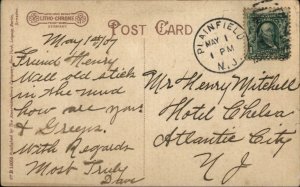 LITHO-CHROME
GERMANY
POST CARD
PLAINFIELD
MAY 1
1 PM
N.J.
May 1st/07
Friend Henry
Well old stick
in the mud
how are you
& Greens.
With Regards
Most Truly
Dave
Mr Henry Mitchell
Hotel Chelsea
Atlantic City
N J